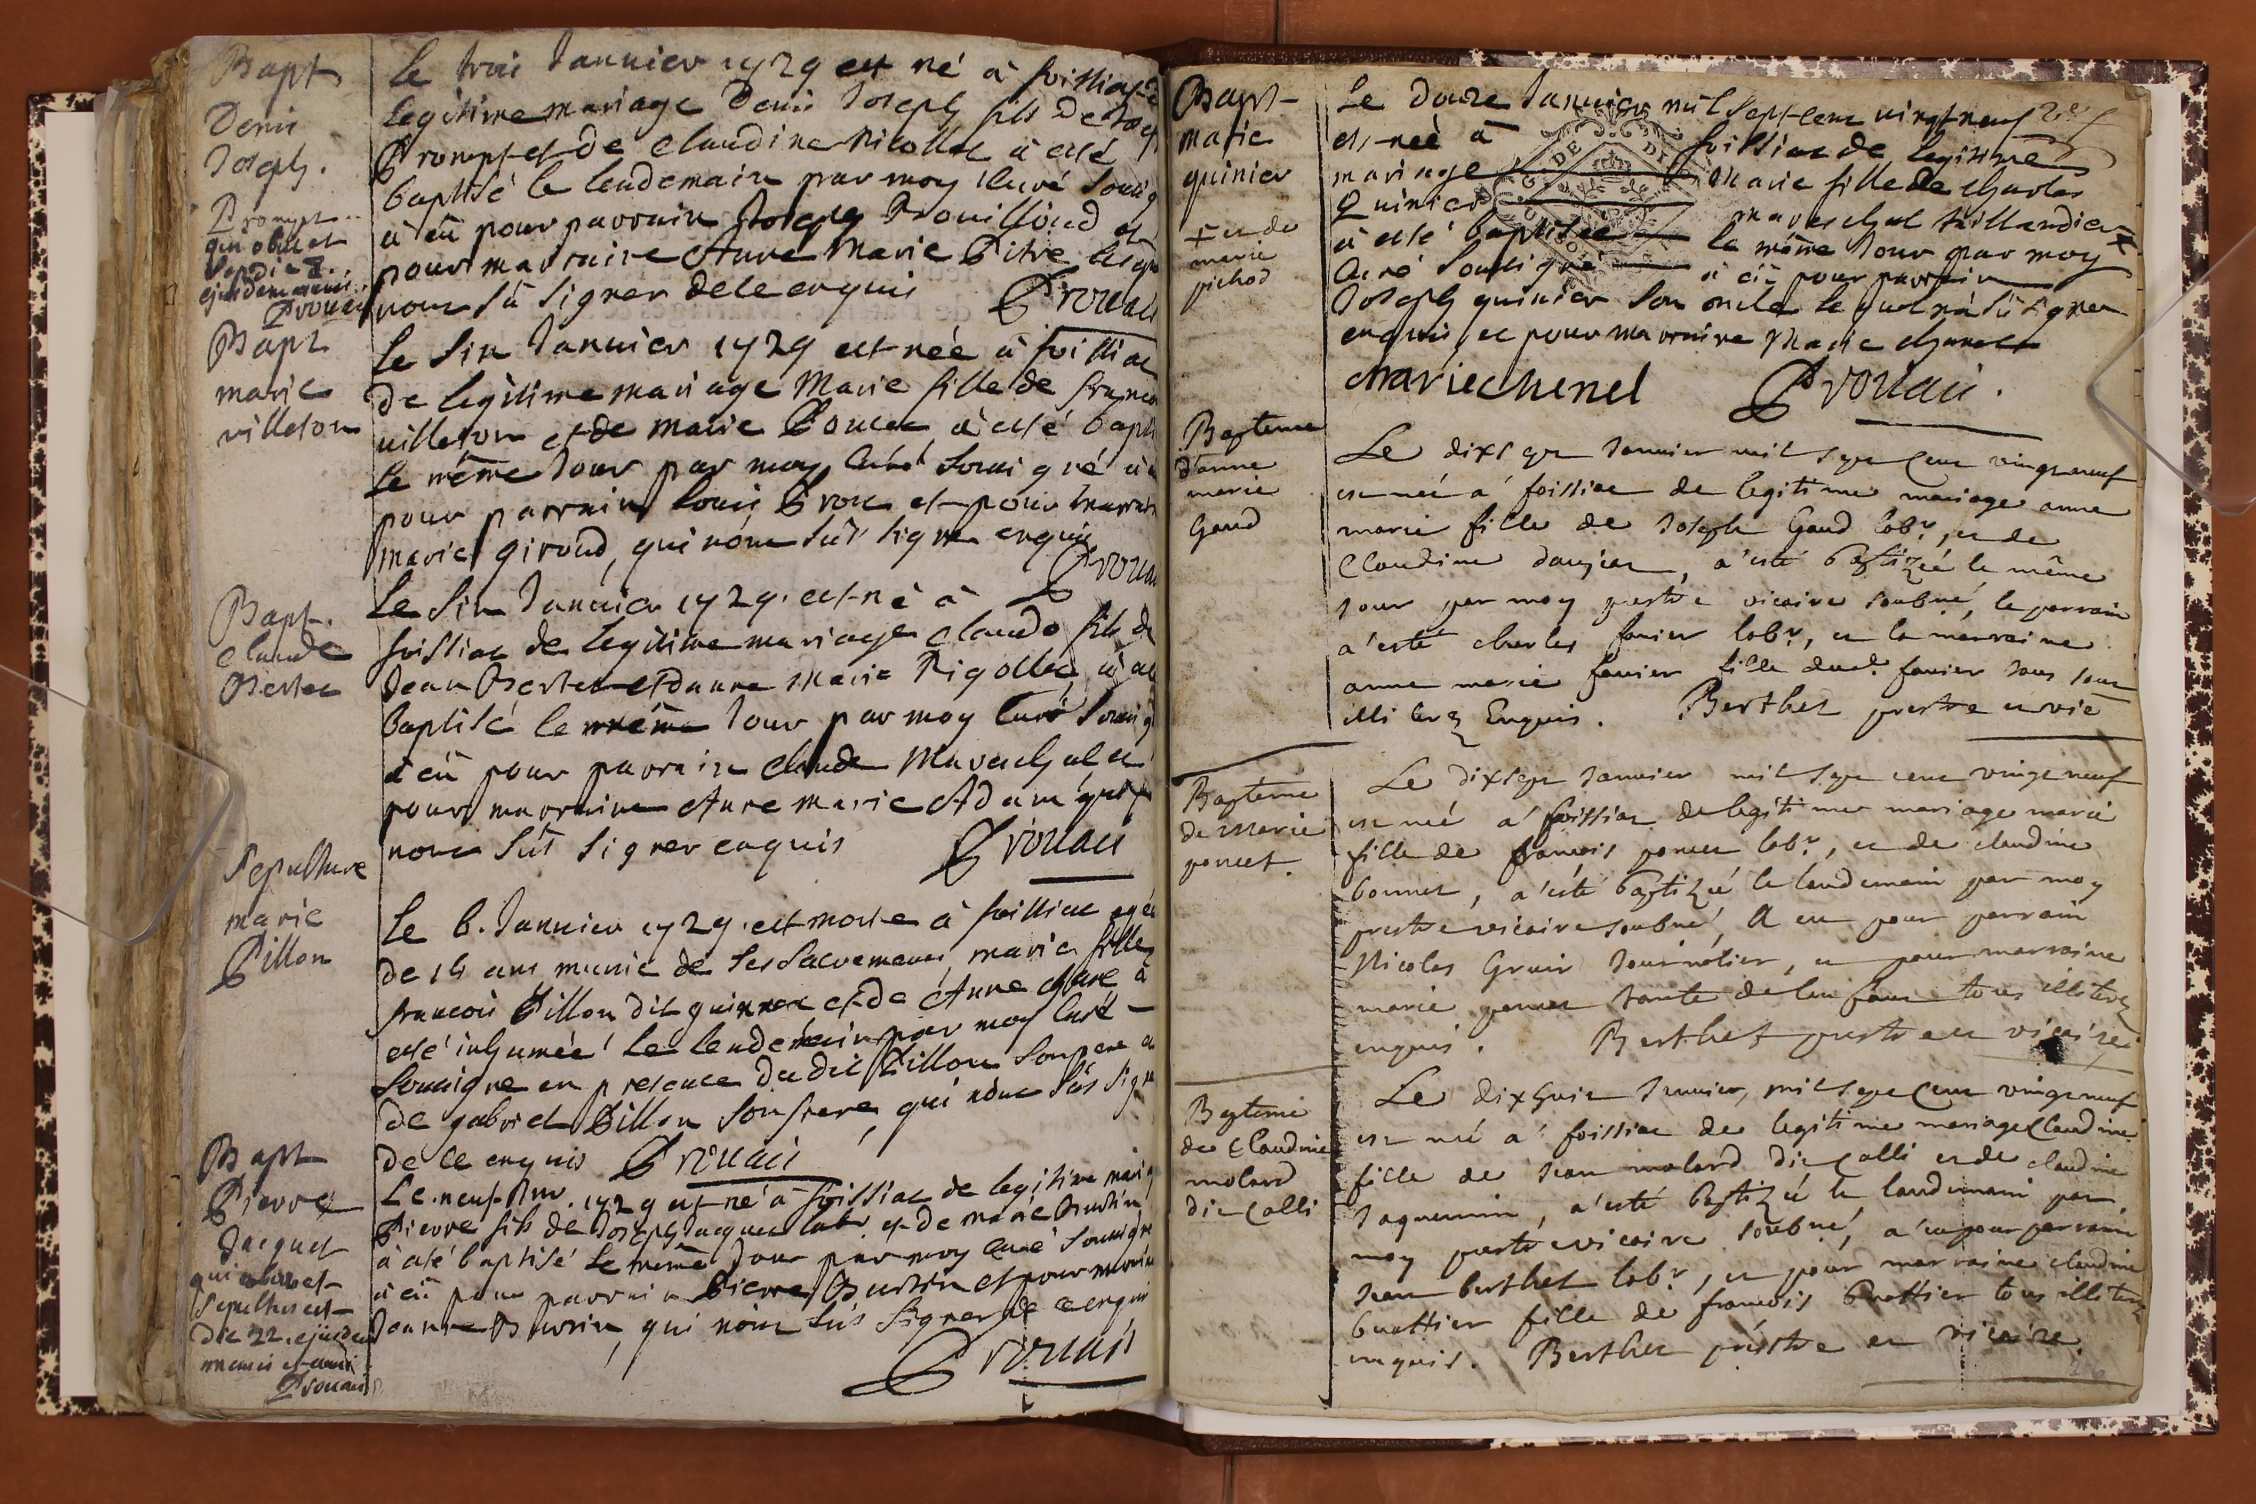 Bapt
Denis
Joseph.
Prompt
qui obiit et
sepult 8.
ejusdem mensis
Prouani
Le trois Janvier 1729 est né à foissiat de
legitime mariage Denis Joseph fils de Joseph
Prompt et de Claudine Nicollet à esté
baptisé le lendemain par moy Curé soussig
à eû pour parrain Joseph Trouilloud et
pour marraine Anne Marie Pitre lesq
n'ont sû signer de ce enquis Prouani
Bapt
marie
villeton
Le six Janvier 1729 est née à foissiat
de legitime mariage Marie fille de françoi
villeton et de marie Poncet, à esté bapti
le même Jour par moy Curé soussigné à
pour parrain louis Proux et pour marrai
marie giroud, qui n'ont sûs signer enquis
Prouani
Bapt.
Claude
Berlet
Le six Janvier 1729. est né à
foissiat de legitime mariage claude fils de
Jean Berlet et d'anne Marie Rigollet, à esté
baptisé le même Jour par moy Curé soussig
à eû pour parrain Claude Mareschal et
pour marraine Anne marie Adam qui
n'ont sûs signer enquis Prouani
Sepulture
marie
Pillon
Le 6. Janvier 1729. est morte à foissiat agée
de 14 ans munie de ses sacremens marie fille
françois Pillon dit et de Anne à
esté inhumée le lendemain par moy Curé
soussigné en presence dudit Pillon son pere et
de gabriel Pillon son frere, qui n'ont sûs signe
de ce enquis Prouani
Bapt
Pierre
Jacquet
qui obiit et
sepultus est
die 22. ejusdem
mensis et anni
Prouani
Le neuf Janv. 1729 est né à foissiat de legitime mari
Pierre fils de Joseph Jacquet labr. et de marie Burtin
à esté baptisé le même Jour par moy Curé soussigné
à eû pour parrain Pierre Burtin et pour marrain
Jeanne Burtin, qui n'ont sûs signer de ce enquis
Prouani
Bapt
marie
quinier
+ et de
marie
pichod
Le douze Janvier mil sept cent vingt neuf
est née à foissiat de legitime
mariage Marie fille de Charles
Quinier mareschal taillandier +
à esté baptisée le même Jour par moy
Curé soussigné à eû pour parrain
Joseph quinier son oncle le quel n'a sû signer
enquis, et pour marraine Marie chanel
marie chenel Prouani.
Bapteme
d'anne
marie
Gaud
Le dixsept Janvier mil sept cent vingt neuf
est née a foissiat de legitime mariage anne
marie fille de Joseph Gaud labr, et de
Claudine daujat, a esté baptizée le même
jour par moy prestre vicaire soubné, le parrain
a esté charles favier labr, et la marraine
anne marie favier fille dud. favier tous
illiterez Enquis. Berthet prestre et vic
Bapteme
de Marie
poncet.
Le dixsept Janvier mil sept cent vingt neuf
est née a foissiat de legitime mariage marie
fille de françois poncet labr, et de claudine
bonnet, a esté baptizée le landemain par moy
prestre vicaire soubné, A eu pour parrain
Nicolas Gruir Journalier, et pour marraine
marie poncet tante de tous illiterez
enquis. Berthet prestre et vicaire
Bapteme
de Claudine
molard
dit Calli
Le dixhuit Janvier, mil sept cent vingt neuf
est née a foissiat de legitime mariage Claudine
fille de Jean molard dit Calli et de claudine
Jaquemin, a esté baptizée le landemain par
moy prestre vicaire soubné, a eu pour parrain
Jean berthet labr, et pour marraine claudine
buattier fille de françois buattier tous illiterez
enquis. Berthet prestre et vicaire.